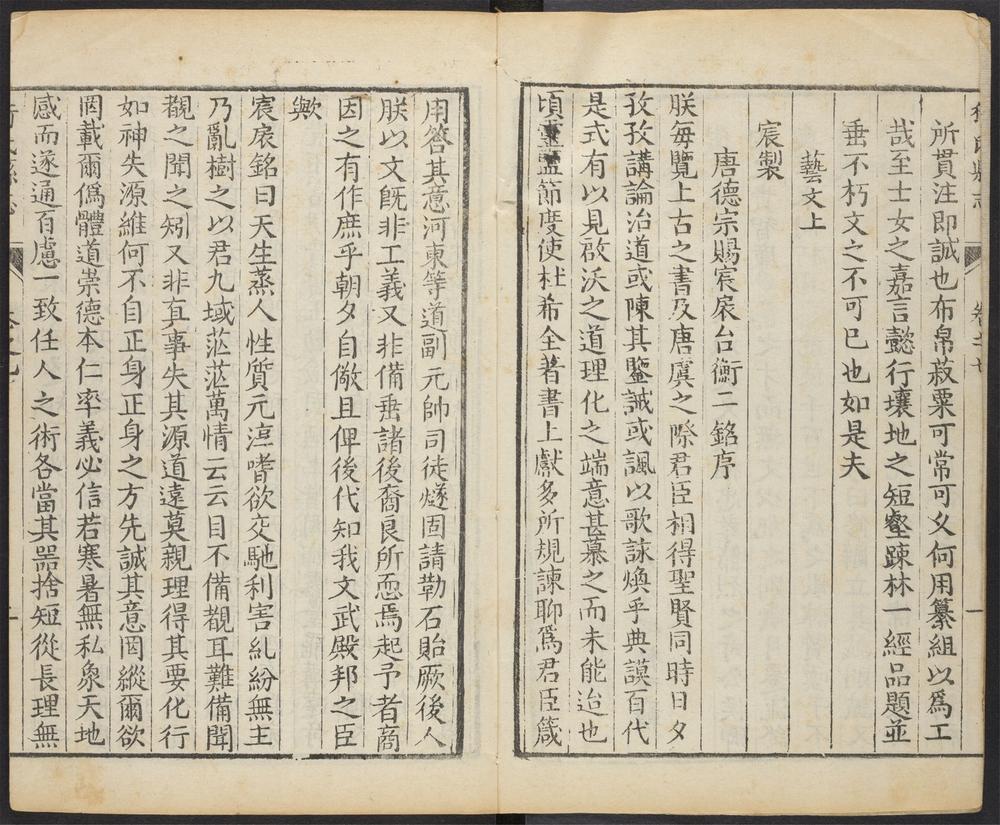 所貫注即誠也布帛菽粟可常可久何用纂組以爲工
哉至士女之嘉言懿行壤地之短壑疎林一經品題並
垂不朽文之不可已也如是夫
藝文上
宸製
唐德宗賜宸扆台衡二銘序
朕每覽上古之書及唐虞之際君臣相得聖賢同時日夕
孜孜講論治道或陳其鑒誡或諷以歌詠煥乎典謨百代
是式有以見啟沃之道理化之端意甚慕之而未能迨也
頃靈鹽節度使杜希全著書上獻多所規諫聊爲君臣箴
用答其意河東等道副元帥司徒燧固請勒石貽厥後人
朕以文旣非工義又非備垂諸後裔良所恧焉起予者商
因之有作庶乎朝夕自儆且俾後代知我文武殿邦之臣
歟
宸扆銘曰天生蒸人性質元淳嗜欲交馳利害糺紛無主
乃亂樹之以君九域茫茫萬情云云目不備覩耳難備聞
覩之聞之矧又非眞事失其源道遠莫親理得其要化行
如神失源維何不自正身正身之方先誠其意罔縱爾欲
罔載爾僞體道崇德本仁率義必信若寒暑無私象天地
感而遂通百慮一致任人之術各當其器捨短從長理無